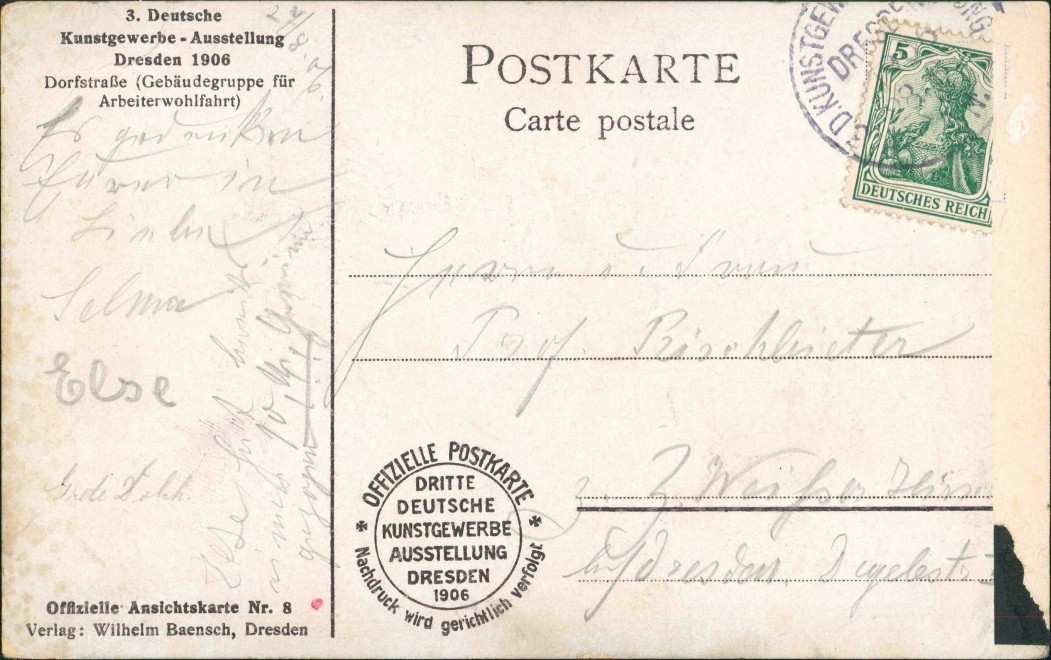 3. Deutsche
Kunstgewerbe - Ausstellung
Dresden 1906
Dorfstraße (Gebäudegruppe für
Arbeiterwohlfahrt)
Es gedenken
Eurer in
Liebe
Selma
Else
Grete
Else hat
Offizielle Ansichtskarte Nr. 8
Verlag: Wilhelm Baensch, Dresden
POSTKARTE
Carte postale
D. KUNSTGEW
DRESDEN
5
DEUTSCHES REICH
Herrn u. Frau
Prof. Rischbieter
z. Z. Weißer Hirsch
b/Dresden
OFFIZIELLE POSTKARTE
DRITTE
DEUTSCHE
KUNSTGEWERBE
AUSSTELLUNG
DRESDEN
1906
Nachdruck wird gerichtlich verfolgt